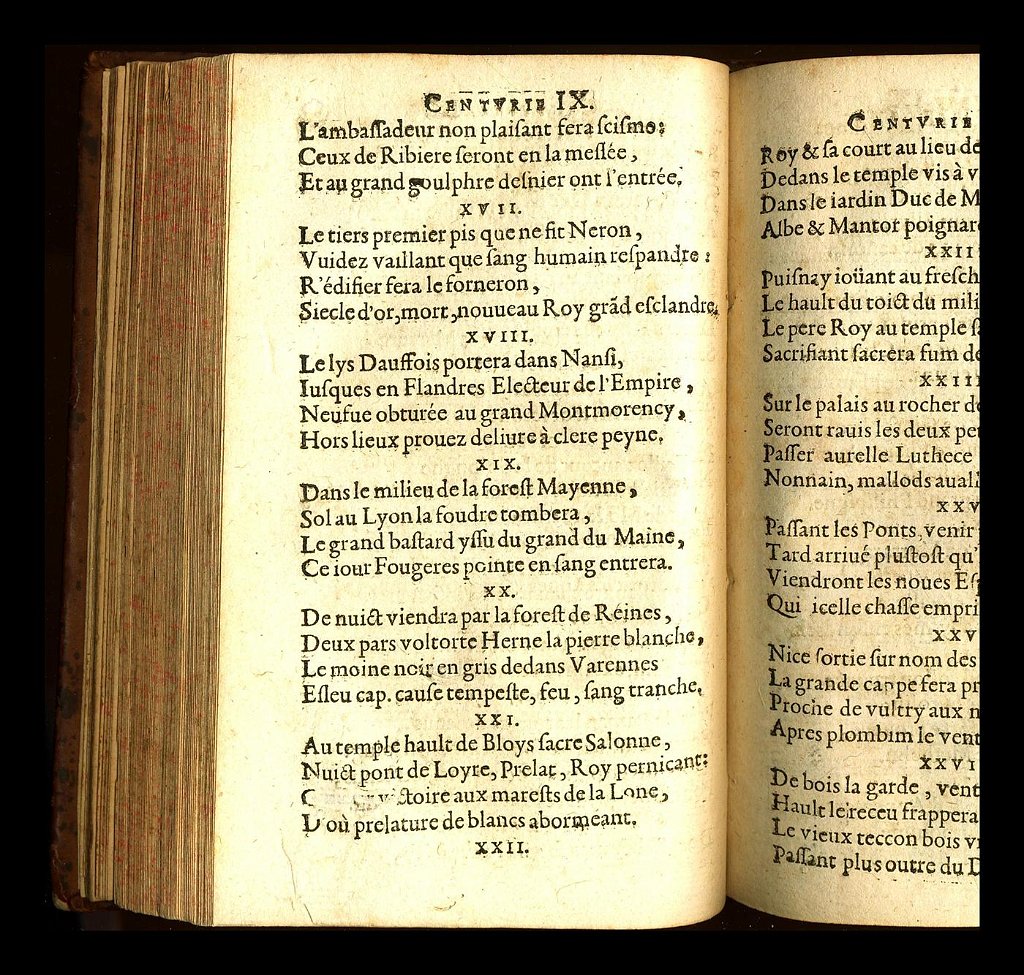 CENTVRIE IX.
L'ambaſſadeur non plaiſant fera ſciſme:
Ceux de Ribiere ſeront en la meſlée,
Et au grand goulphre deſnier ont l'entrée.
XVII.
Le tiers premier pis que ne fit Neron,
Vuidez vaillant que ſang humain reſpandre:
R'édifier fera le forneron,
Siecle d'or, mort, nouueau Roy grãd eſclandre.
XVIII.
Le lys Dauffois portera dans Nanſi,
Iuſques en Flandres Electeur de l'Empire,
Neufue obturée au grand Montmorency,
Hors lieux prouez deliure à clere peyne.
XIX.
Dans le milieu de la foreſt Mayenne,
Sol au Lyon la foudre tombera,
Le grand baſtard yſſu du grand du Maine,
Ce iour Fougeres pointe en ſang entrera.
XX.
De nuict viendra par la foreſt de Reines,
Deux pars voltorte Herne la pierre blanche,
Le moine noir en gris dedans Varennes
Eſleu cap. cauſe tempeſte, feu, ſang tranche.
XXI.
Au temple hault de Bloys ſacre Salonne,
Nuict pont de Loyre, Prelat, Roy pernicant:
victoire aux mareſts de la Lone,
D'où prelature de blancs abormeant.
XXII.
CENTVRIE
Roy & ſa court au lieu de
Dedans le temple vis à v
Dans le iardin Duc de M
Albe & Mantor poignar
XXII
Puiſnay ioüant au freſch
Le hault du toict du mili
Le pere Roy au temple ſ
Sacrifiant ſacrera fum de
XXIII
Sur le palais au rocher d
Seront rauis les deux pe
Paſſer aurelle Luthece
Nonnain, mallods auall
XXV
Paſſant les Ponts, venir
Tard arriué pluſtoſt qu'
Viendront les noues Eſ
Qui icelle chaſſe empri
XXV
Nice ſortie ſur nom des
La grande cappe fera pr
Proche de vultry aux
Apres plombim le vent
XXVI
De bois la garde, vent
Hault le receu frappera
Le vieux teccon bois v
Paſſant plus outre du D